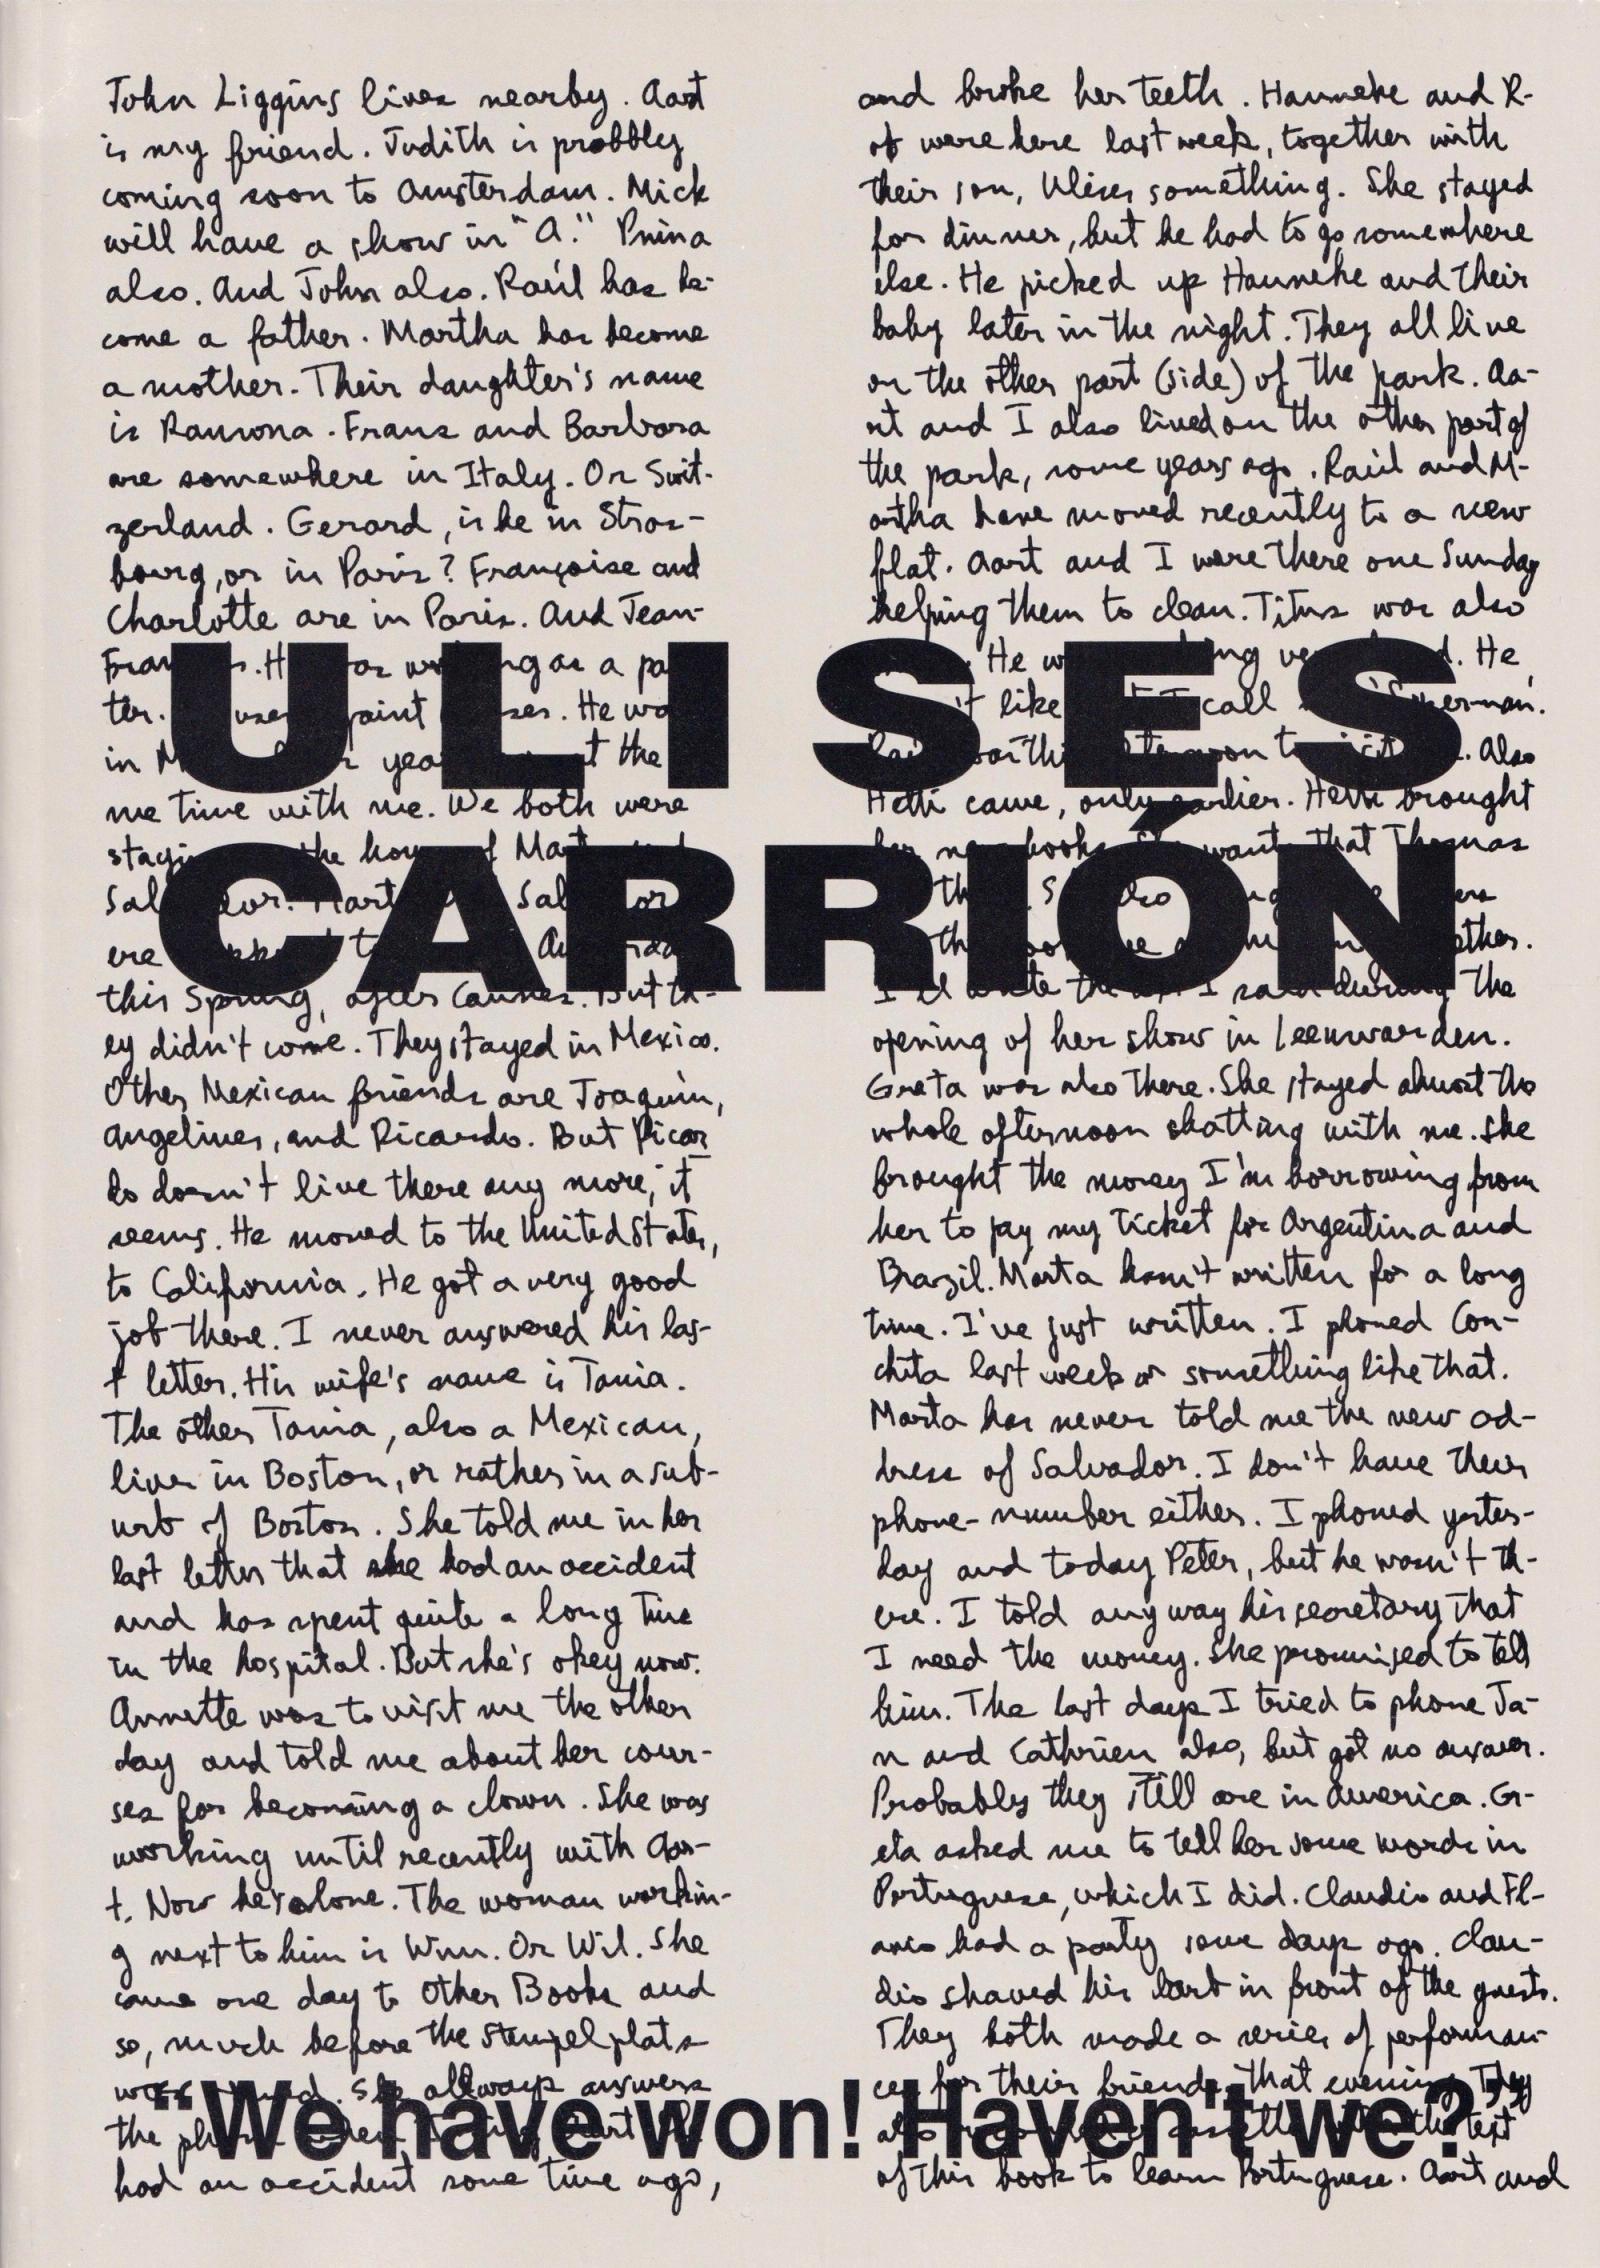 John Liggins lives nearby. Aart
is my friend. Judith is probbley
coming soon to Amsterdam. Mick
will have a show in "A." Pnina
also. And John also. Raúl has be-
come a father. Martha has become
a mother. Their daughter's name
is Ramona. Frans and Barbara
are somewhere in Italy. Or Swit-
zerland. Gerard, is he in Stras-
bourg, or in Paris? Françoise and
Charlotte are in Paris. And Jean-
as a
ter. paint He
in the
me time with me. We both were
the of
this Spring, after Cannes. But th-
ey didn't come. They stayed in Mexico.
Other Mexican friends are Joaquin,
Angelines, and Ricardo. But Ricar
do doesn't live there any more, it
seems. He moved to the United States,
to California. He got a very good
job there. I never answered his las-
t letter. His wife's name is Tania.
The other Tania, also a Mexican,
lives in Boston, or rather in a sub-
urb of Boston. She told me in her
last letter that she had an accident
and has spent quite a long time
in the hospital. But she's okey now.
Annette was to visit me the other
day and told me about her cour-
ses for becoming a clown. She was
working until recently with Aar-
t. Now he's alone. The woman workin-
g next to him is Wim. Or Wil. She
came one day to Other Books and
so, much before the Stempelplats
She allways answers
the
had an accident some time ago,
and broke her teeth. Hanneke and R-
ob were here last week, together with
their son, Ulises something. She stayed
for dinner, but he had to go somewhere
else. He picked up Hanneke and their
baby later in the night. They all live
on the other part (side) of the park. Aa-
rt and I also lived on the other part of
the park, some years ago. Raúl and M-
artha have moved recently to a new
flat. Aart and I were there one Sunday
helping them to clean. Titus was also
He He
like I call
Also
Hetti came, only earlier. Hetti brought
her new books. She wants that Thomas
opening of her show in Leeuwarden.
Greta was also there. She stayed almost the
whole afternoon shatting with me. She
brought the money I'm borrowing from
her to pay my ticket for Argentina and
Brazil. Marta hasn't written for a long
time. I've just written. I phoned Con-
chita last week or something like that.
Marta has never told me the new ad-
dress of Salvador. I don't have their
phone-number either. I phoned yester-
day and today Peter, but he wasn't th-
ere. I told anyway his secretary that
I need the money. She promised to tell
him. The last days I tried to phone Ja-
n and Cathrien also, but got no answer.
Probably they still are in America. Gr-
eta asked me to tell her some words in
Portuguese, which I did. Claudio and Fl-
avio had a party some days ago. Clau-
dio shaved his bart in front of the guests.
They both made a series of performan-
ces for their friends that evening. They
text
of this book to learn Portuguese. Aart and
ULISES
CARRIÓN
"We have won! Haven't we?"